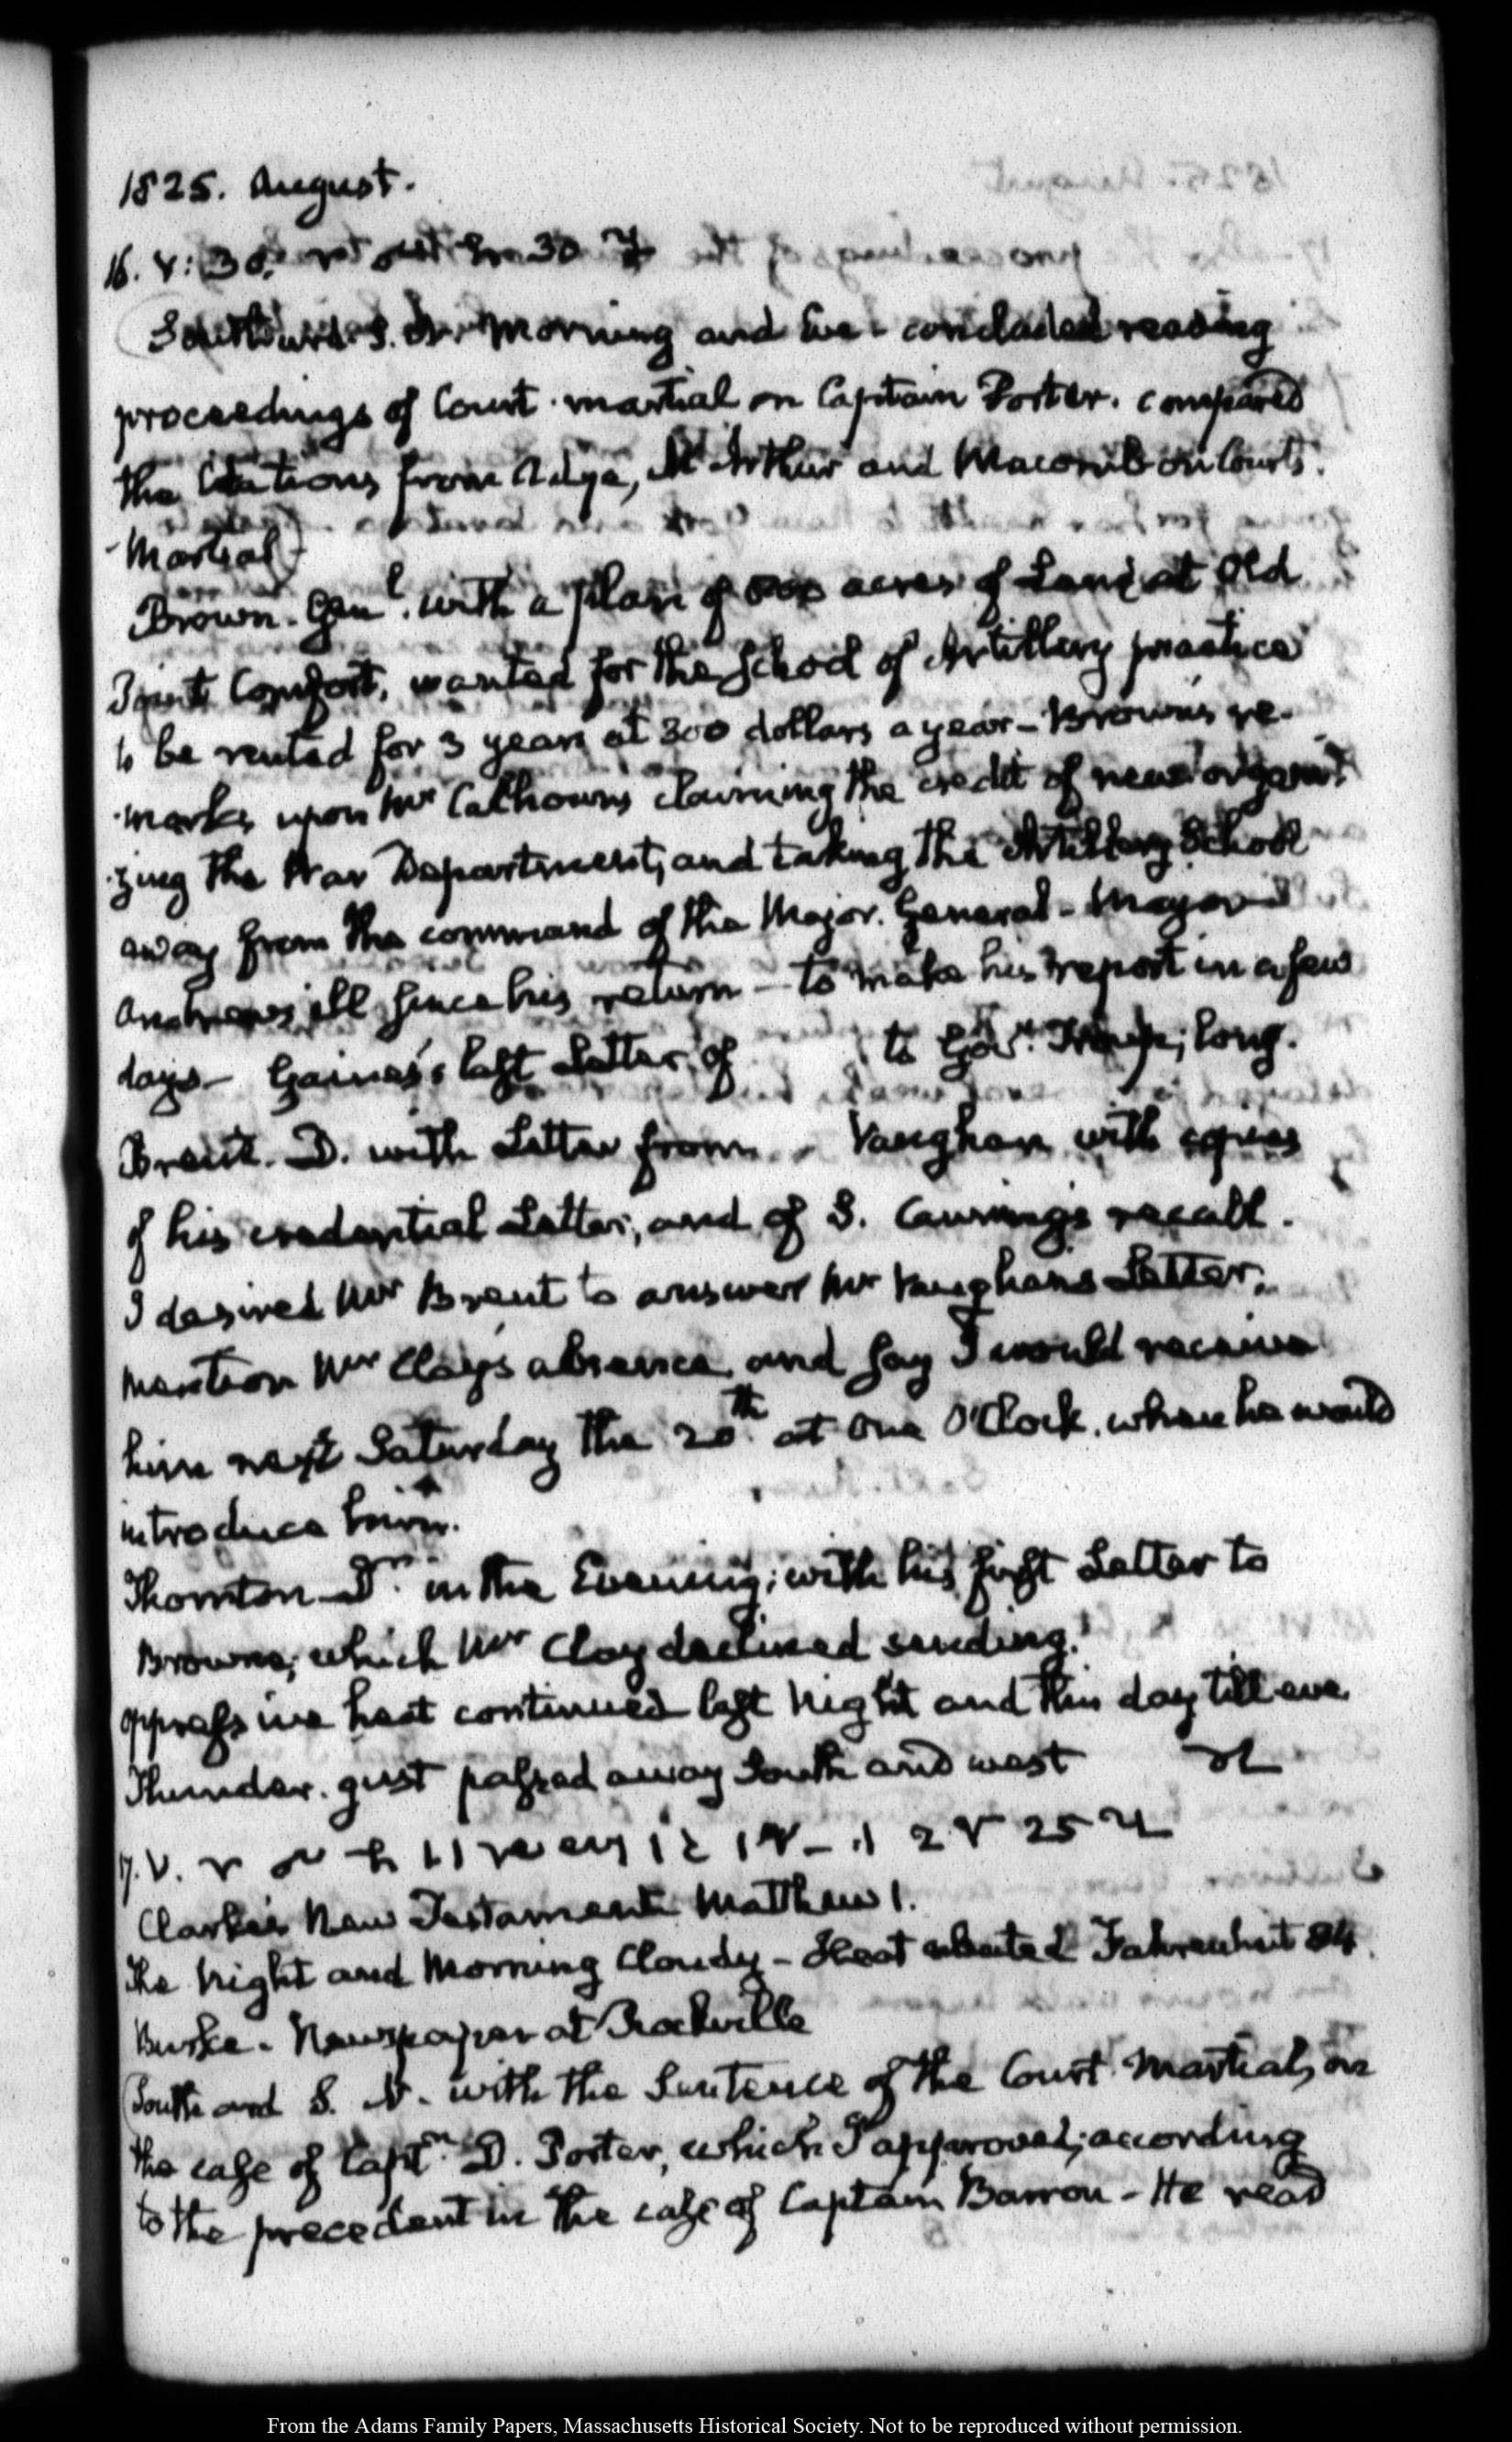 1825. August.
16. V: 30.
Southard. S. Morning and Eve - concluded reading
proceedings of Court-martial on Captain Porter. compared
the Citations from Adye, Mc Arthur and Macomb on Courts
-Martial
Brown. Genl. with a plan of acres of Land at Old
Point Comfort, wanted for the School of Artillery practice
to be rented for 3 years at 300 dollars a year - Brown's re-
-marks upon Mr Calhoun's claiming the credit of new organi-
-zing the War Department, and taking the Artillery School
away from the command of the Major-General - Major
Andrews, ill since his return - to make his report in a few
days - Gaines's last Letter of to Govr. Troup; long.
Brent. D. with Letter from Vaughan with copies
of his credential Letter; and of S. Canning's recall.
I desired Mr Brent to answer Mr Vaughan's Letter.
mention Mr Clay's absence and say I would receive
him next Saturday the 20th. at One O'Clock. when he would
introduce him.
Thornton Dr. in the Evening; with his first Letter to
Browne; which Mr Clay declined sending.
oppressive heat continued last Night and this day till eve
Thunder-gust passed away South and west
17. V.
Clarke's New Testament Matthew 1.
The Night and Morning Cloudy - Heat abated Fahrenheit 84.
Burke. Newspaper at Rockville
Southard S. N. with the Sentence of the Court Martial, on
the case of Captn. D. Porter, which I approved; according
to the precedent in the case of Captain Barron - He read
From the Adams Family Papers, Massachusetts Historical Society. Not to be reproduced without permission.